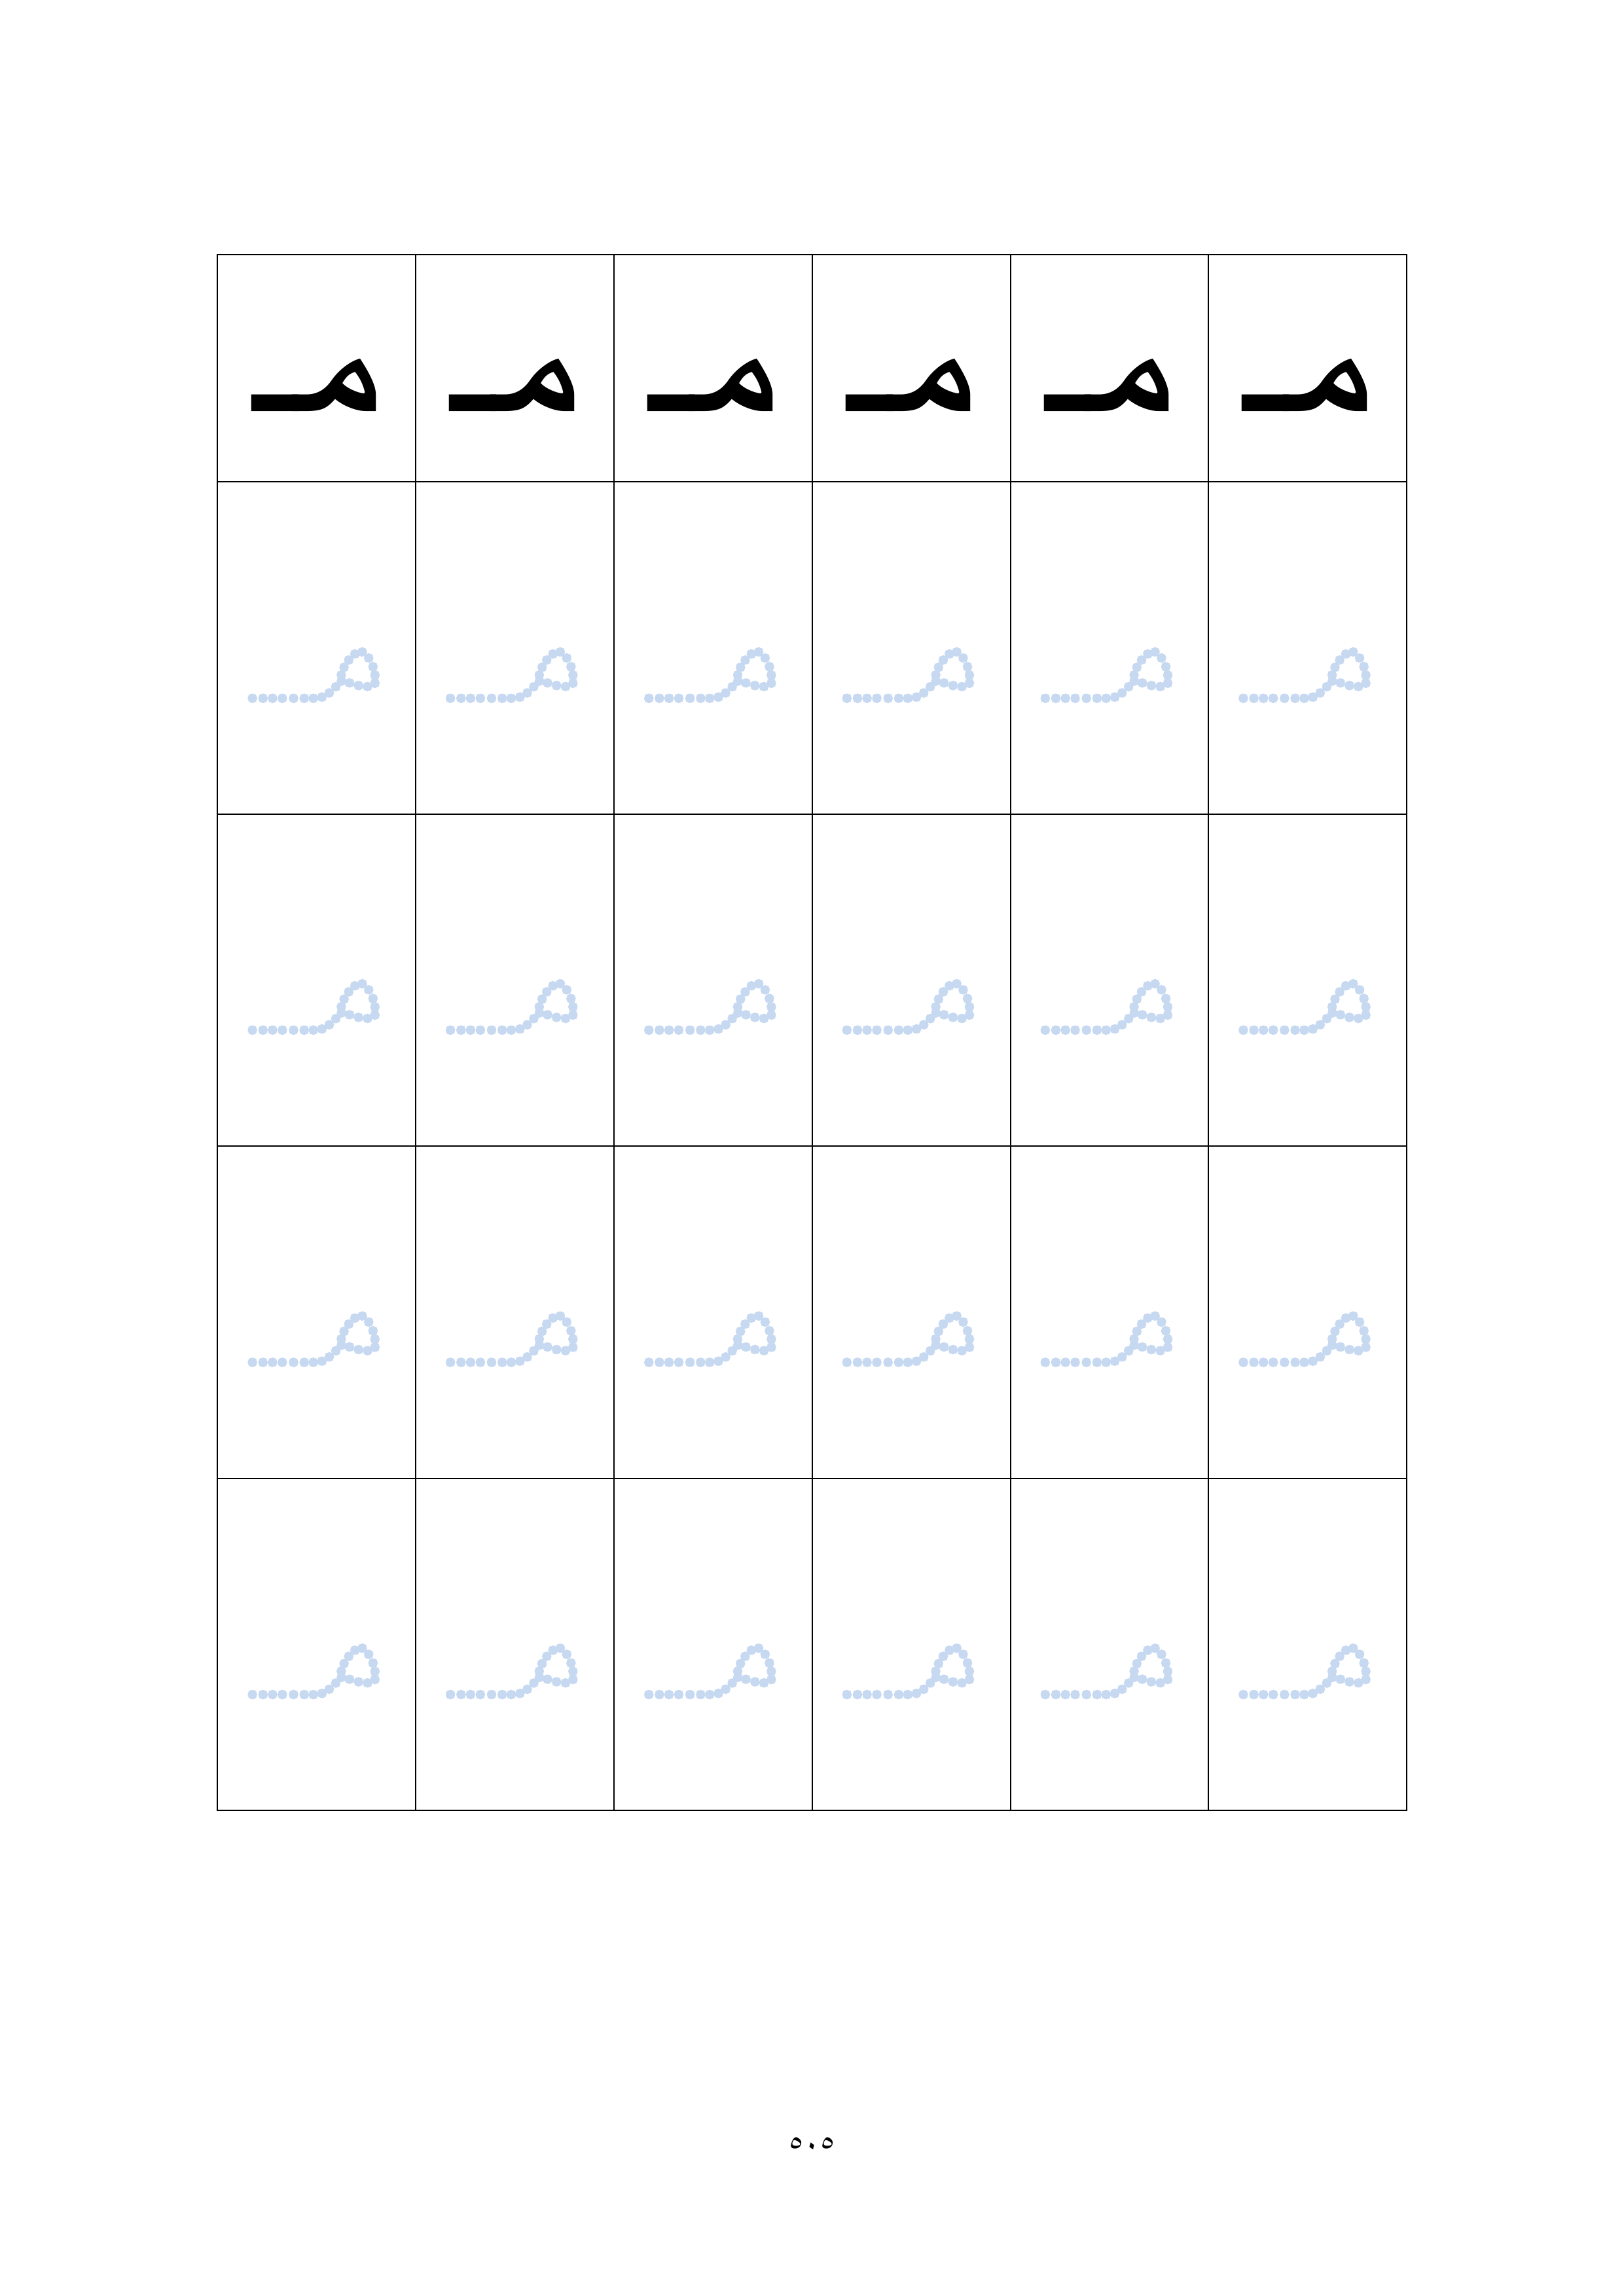 مـ مـ مـ مـ مـ مـ
مـ مـ مـ مـ مـ مـ
مـ مـ مـ مـ مـ مـ
مـ مـ مـ مـ مـ مـ
مـ مـ مـ مـ مـ مـ
٥٠٥